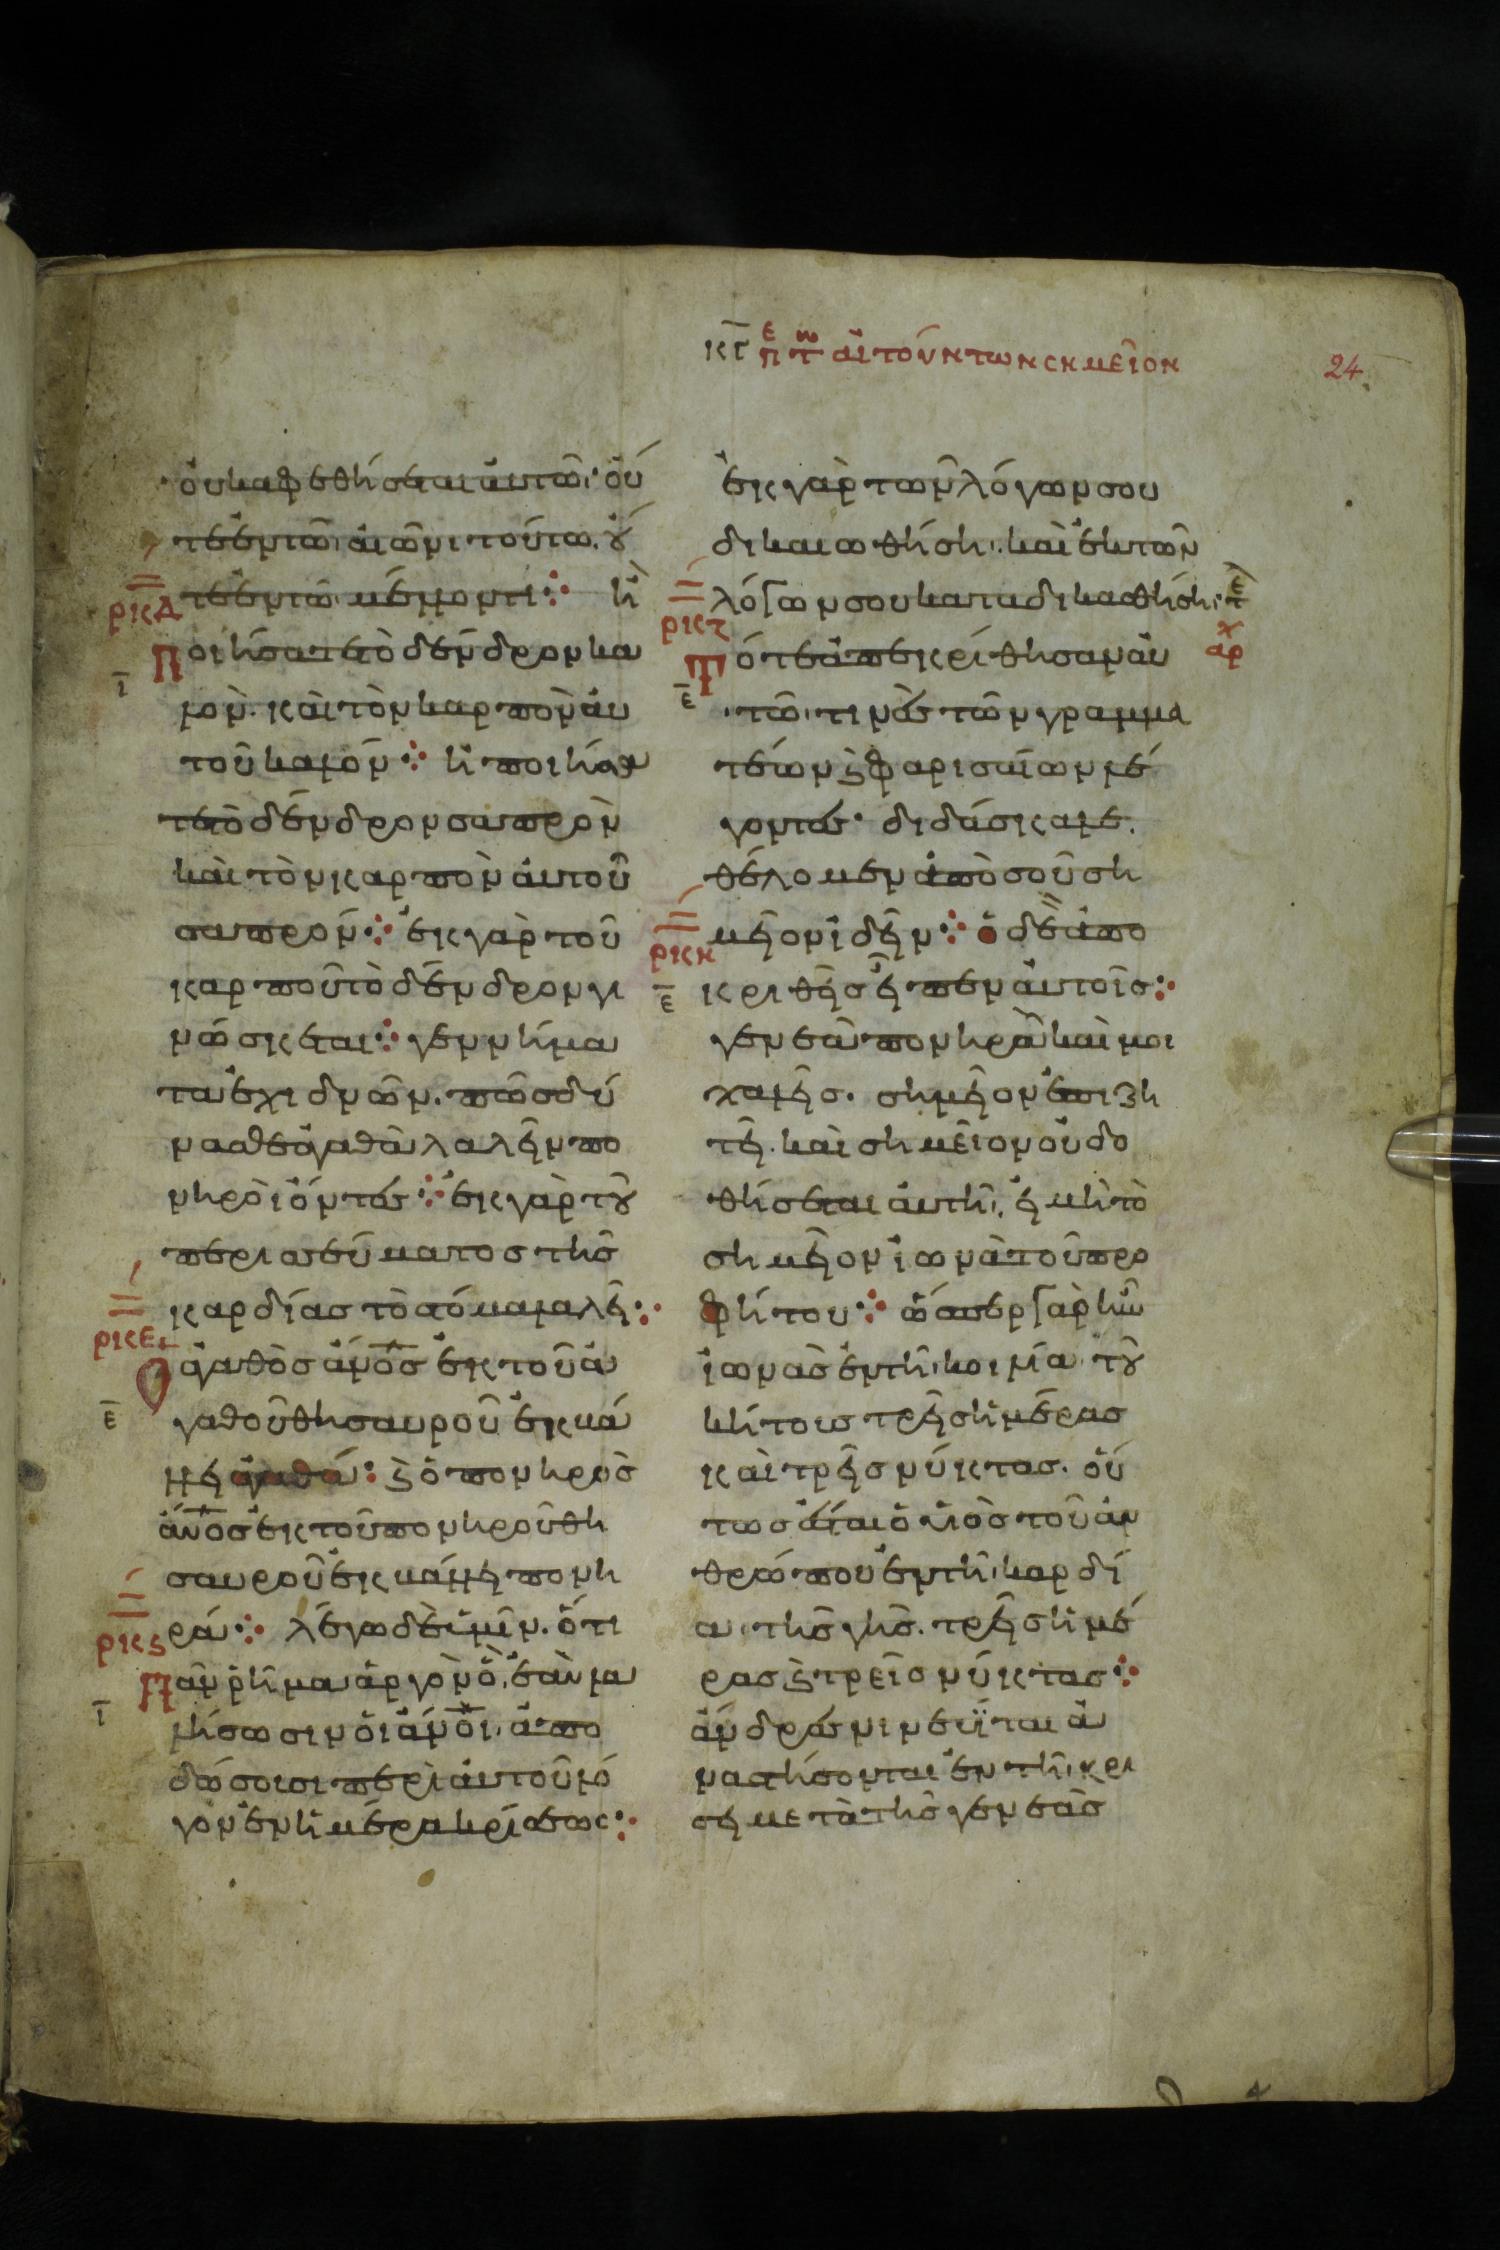 κγ πε τω αἰτούντων σημεῖον
24
ὀυκαφεθήσεται ἀυτῶ· ὀύ
τεἐντῶ αἰῶνι τούτω. ȣ́
τεἐντῶ μέλλοντι ⁘ ἢ
ρκδ
ποιήσατετὸδένδρονκα
ι
λὸν. καὶτὸνκαρπὸνἀυ
τοῦκαλόν ⁘ ἢ ποιήσα
τετὸδένδρονσαπρὸν
καὶτὸνκαρπὸνἀυτοῦ
σαπρόν ⁘ ἐκγὰρτοῦ
καρποῦτὸδένδρονγι
νώσκεται ⁘ γεννήμα
ταἐχιδνῶν. πῶσδύ
νασθεἀγαθὰλαλεῖνπο
νηρὸιὄντες ⁘ ἐκγὰρτȣ̂
περισσεύματοστῆσ
καρδίαστὸστόμαλαλεῖ ⁘
ρκε
Ὁἀγαθὸσἀν̅ο̅σ̅ ἐκτοῦἀ
ε
γαθοῦθησαυροῦἐκβά
λλειἀγαθά ⁘ ϗὁπονηρὸσ
ἀν̅ο̅σ̅ἐκτοῦπονηροῦθη
σαυροῦἐκβάλλειπονη
ρκς
ρά ⁘ λέγωδὲὑμῖν. ὅτι
πᾶνῥῆμαἀργὸνὃ,ἐὰνλα
ι
λήσωσινὁιἀν̅ο̅ι̅, ἀπο
δώσοισιπερὶἀυτοῦλό
γονἐνἡμέρακρίσεως ⁘
ἐκγὰρτῶνλόγωνσου
δικαιωθήση· καὶἐκτῶν
λόγωνσουκαταδικασθήση· τε
ρκζ
τότεἀπεκρίθησανἀυ
αρχ
ε
τῶ τινὲστῶνγραμμα
τέωνϗφαρισαίωνλέ
γοντεσ· διδάσκαλε.
θέλομενἀπὸσοῦση
μεῖονἰδεῖν ⁘ ὁδὲἀπο
ρκη
κριθεὶσεἶπενἀυτοῖσ ⁘
ε
γενεὰπονηρὰκαὶμοι
χαλεῖσ. σημεῖονἐπιζη
τεῖ. καὶσημεῖονοὐδο
θήσεταιἀυτῆ, ἐιμὴτὸ
σημεῖονἰωνᾶτοῦπρο
φήτου ⁘ ὥσπεργὰρἦν
ἰωνᾶσἐντῆκοιλίατȣ̂
κήτουστρεῖσἡμέρασ
καὶτρεῖσνύκτασ. ὅυ
τωσἔσταιὁυἱὸστοῦἀν
θρώπουἐντῆκαρδί
ατῆσγῆσ. τρεῖσἡμέ
ρασϗτρεῖσνύκτασ ⁘
ἄνδρεσνινευῖταιἀ
ναστήσονταιἐντῆκρι
σειμετὰτῆσγενεᾶσ